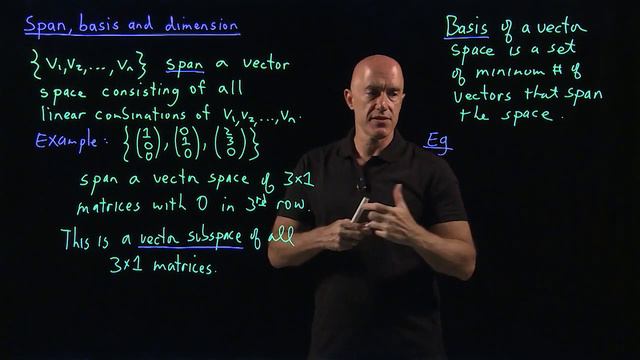 Span, basis and dimension
{V₁,V₂,...,Vₙ} span a vector
space consisting of all
linear combinations of V₁,V₂,...,Vₙ.
Example: {(1 0 0), (0 1 0), (2 3 0)}
span a vector space of 3×1
matrices with 0 in 3rd row.
This is a vector subspace of all
3×1 matrices.
Basis of a vector
space is a set
of minimum # of
vectors that span
the space.
Eg